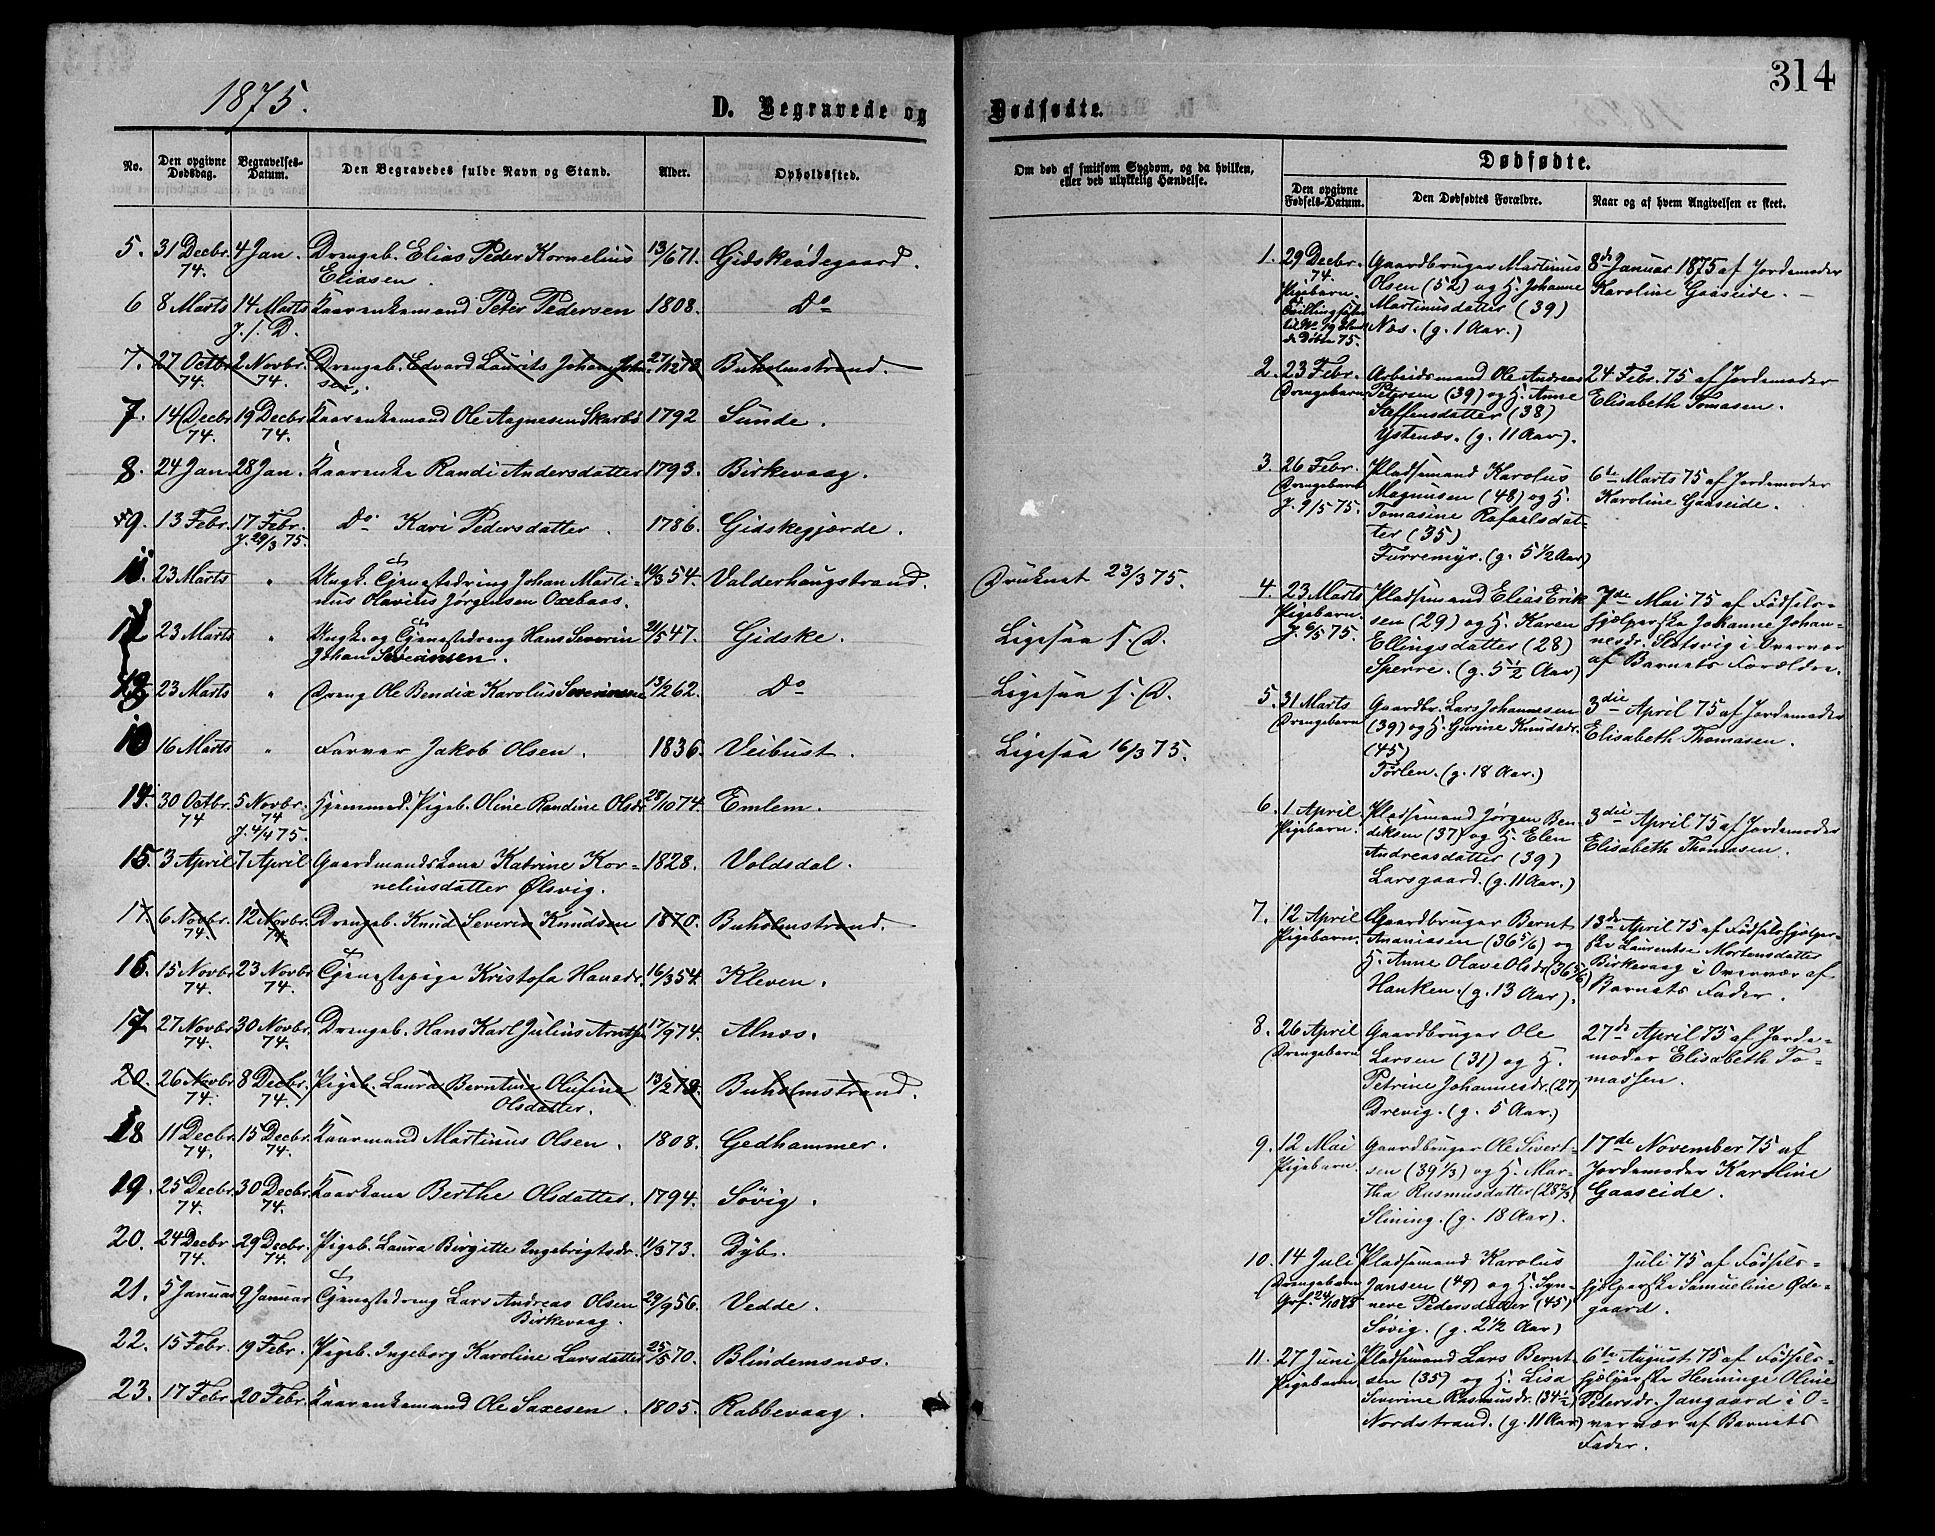 314
1875.
D. Begravede og Dødfødte.
No.
Den opgivne Dødsdag.
Begravelses-Datum.
Den Begravedes fulde Navn og Stand.
Alder.
Opholdssted.
5. 31 Decbr. 74. 4 Jan. Drengeb. Elias Peder Kornelius 13/671. Gidskeødegaard.
Eliasen.
6 8 Marts 14 Marts Kaarenkemand Peter Pedersen 1808. Do
J. s. D.
7. 27 Octbr. 74. 2 Novbr. 74. Drengeb. Edvard Laurits Johan Buholmstrand.
7. 14 Decbr. 74. 19 Decbr. 74. Kaarenkemand Ole Aagnesen Skarbø 1792 Sunde.
8. 24 Jan. 28 Jan. Kaarenke Randi Andersdatter 1793. Birkevaag.
9. 13 Febr. 17 Febr. Do Kari Pedersdatter. 1786. Gidskegjerde.
J. 29/3 75.
11. 23 Marts " Ungk. Tjenestedreng Johan Marti- 10/354. Valderhaugstrand.
nus Olavius Jørgensen Oxebaas.
12 23 Marts " Ungk. og Tjenestedreng Hans Severin 21/547. Gidske.
Johan Severinsen.
13 23 Marts " Dreng Ole Bendix Karolus Severinsen 13/262. Do
10 16 Marts " Farver Jakob Olsen. 1836. Veibust.
14. 30 Octbr. 74 5 Novbr. 74 Hjemmed. Pigeb. Oline Randine Olsdr. 28/1074. Emlem.
J. 4/4 75.
15. 3 April 7 April Gaardmandskona Katrine Kor- 1828. Voldsdal.
neliusdatter Ølsvig.
17. 6 Novbr. 74. 12 Novbr. 74. Drengeb. Knud Severin Knudsen 1870. Buholmstrand.
16. 15 Novbr. 74. 23 Novbr. 74. Tjenestepige Kristofa Hansdr. 16/354. Kleven.
17 27 Novbr. 74. 30 Novbr. 74. Drengeb. Hans Karl Julius Arntsen 17/974. Alnæs.
20. 26 Novbr. 74. 8 Decbr. 74. Pigeb. Laura Berntine Olufine 13/273. Buholmstrand.
Olsdatter.
18 11 Decbr. 74. 15 Decbr. 74. Kaarmand Martinus Olsen. 1808. Gedhammer.
19. 25 Decbr. 74. 30 Decbr. 74. Kaarkona Berthe Olsdatter. 1794. Søvig.
20. 24 Decbr. 74. 29 Decbr. 74. Pigeb. Laura Birgitte Ingebrigtsdr. 11/373. Dyb.
21. 5 Januar 9 Januar Tjenestedreng Lars Andreas Olsen 29/956. Vedde.
Birkevaag.
22. 15 Febr. 19 Febr. Pigeb. Ingeborg Karoline Larsdatter 25/570. Blindemsnæs.
23. 17 Febr. 20 Febr. Kaarenkemand Ole Saxesen. 1805. Rabbevaag.
Om død af smitsom Sygdom, og da hvilken,
eller ved ulykkelig Hændelse.
Druknet 23/3 75.
Ligesaa s. D.
Ligesaa s. D.
Ligesaa 16/3 75.
Dødfødte.
Den opgivne Fødsels-Datum.
Den Dødfødtes Forældre.
Naar og af hvem Angivelsen er skeet.
1. 29 Decbr. Gaardbruger Martinus 8de Januar 1875 af Jordemoder
74. Olsen (52) og H. Johanne Karoline Gaaseide.
Pigebarn. Martinusdatter (39)
Næs. (g. 1 Aar.)
2. 23 Febr. Arbeidsmand Ole Andreas 24 Febr. 75 af Jordemoder
Drengebarn Petersen (39) og H. Anne Elisabeth Tomasen.
Steffensdatter (38)
Ystenæs. (g. 11 Aar).
3. 26 Febr. Pladsemand Karolus 6te Marts 75 af Jordemoder
Drengebarn Magnusen (48) og H. Karoline Gaaseide.
J. 9/5 75. Tomasine Rafaelsdat-
ter (35)
Furremyr. (g. 5 1/2 Aar)
4. 23 Marts Pladsemand Elias Erik 7de Mai 75 af Fødsels-
Pigebarn. sen (29) og H. Karen hjælperske Johanne Johan-
J. 6/5 75. Ellingsdatter (28) nesdr. Slotsvig i Overvær
Sperre. (g. 5 1/2 Aar) af Barnets Forældre.
5. 31 Marts Gaardbr. Lars Johannesen 3die April 75 af Jordemoder
Drengebarn (39) og H. Gurine Knudsdr. Elisabeth Thomasen.
(45)
Tørlen. (g. 18 Aar.)
6. 1 April Pladsemand Jørgen Ben- 3die April 75 af Jordemoder
Pigebarn. diksen (37) og H. Elen Elisabeth Thomasen.
Andreasdatter (39)
Larsgaard. (g. 11 Aar.)
7. 12 April Gaardbruger Bernt 13de April 75 af Fødselshjælper-
Pigebarn. Ananiasen (36 5/6) og ske Laurentse Mortensdatter
H. Anne Olave Olsdr. (36 5/6) Birkevaag i Overvær af
Hanken. (g. 13 Aar). Barnets Fader.
8. 26 April Gaardbruger Ole 27de April 75 af Jorde-
Drengebarn Larsen (31) og H. moder Elisabeth To-
Petrine Johannesdr. (27) massen.
Drevig. (g. 5 Aar.)
9. 12 Mai Gaardbruger Ole Sivert- 17de November 75 af
Pigebarn. sen (39 1/3) og H. Mar- Jordemoder Karoline
tha Rasmusdatter (28 2/3) Gaaseide.
Slining. (g. 18 Aar).
10. 14 Juli Pladsemand Karolus Juli 75 af Fødsels-
Drengebarn Jansen (49) og H. Syn- hjælperske Samueline Øde-
Grf. 24/10 75 nere Pedersdatter (45) gaard.
Søvig. (g. 2 1/2 Aar)
11. 27 Juni Pladsemand Lars Bernt 6te August 75 af Fødsels-
Pigebarn sen (35) og H. Lisa hjælperske Henninge Oline
Severine Rasmusdr. (34 1/2) Petersdr. Jangaard i O-
Nordstrand. (g. 11 Aar) vervær af Barnets
Fader.